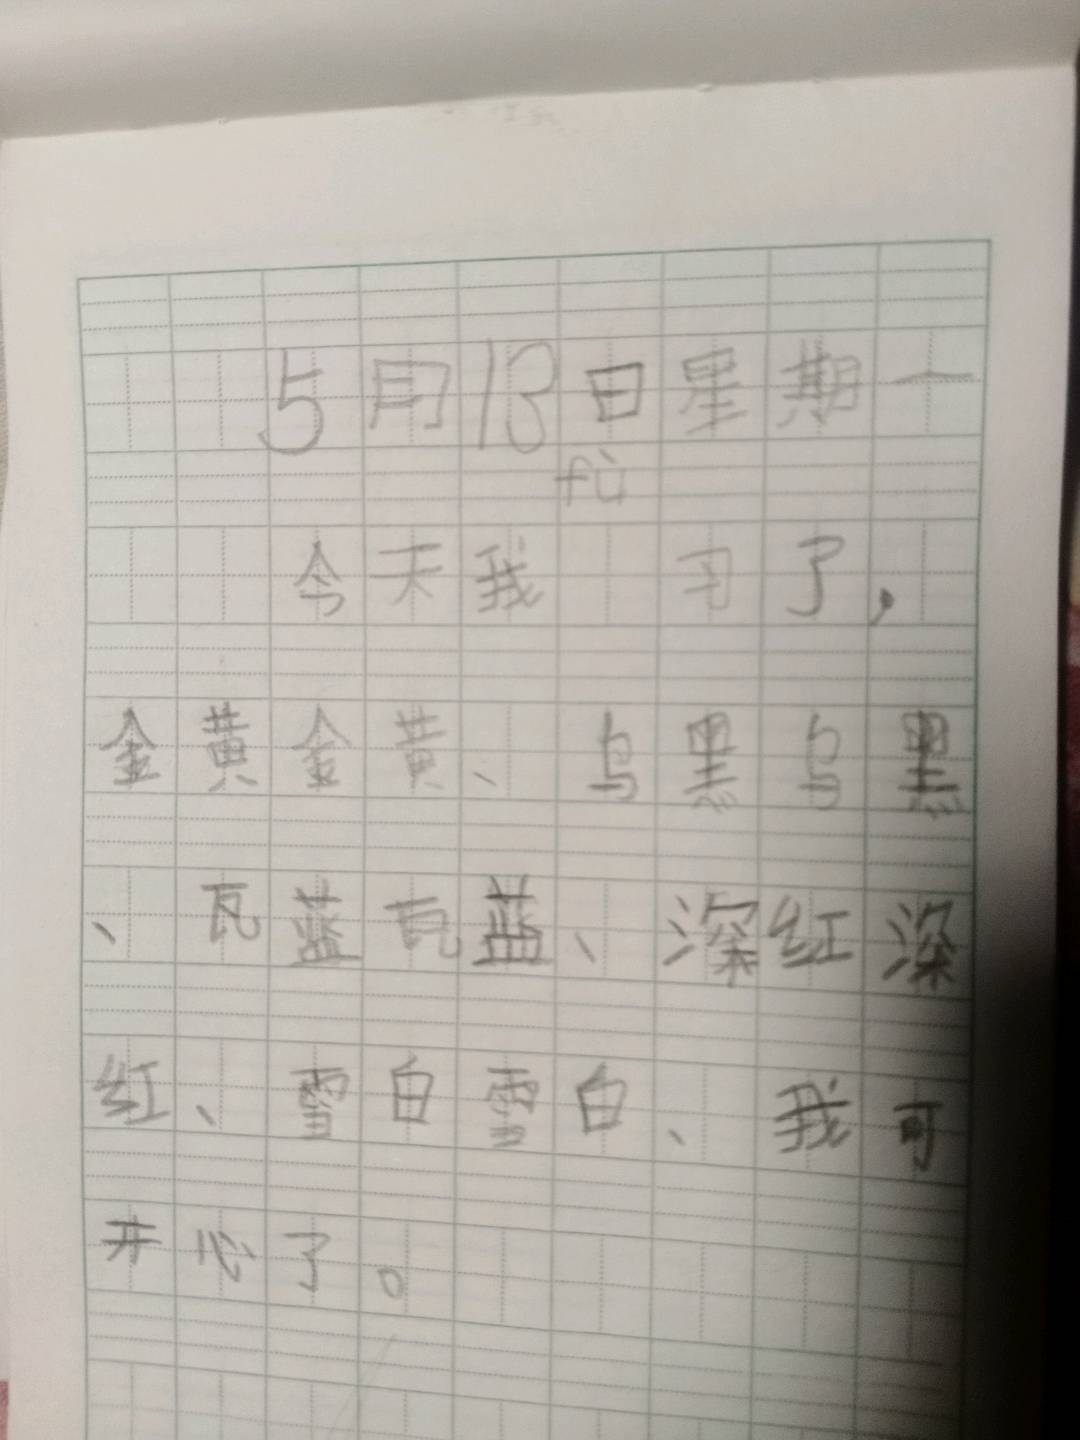 5月13日星期一
fù
今天我 习了,
金黄金黄、乌黑乌黑
、瓦蓝瓦蓝、深红深
红、雪白雪白、我可
开心了。